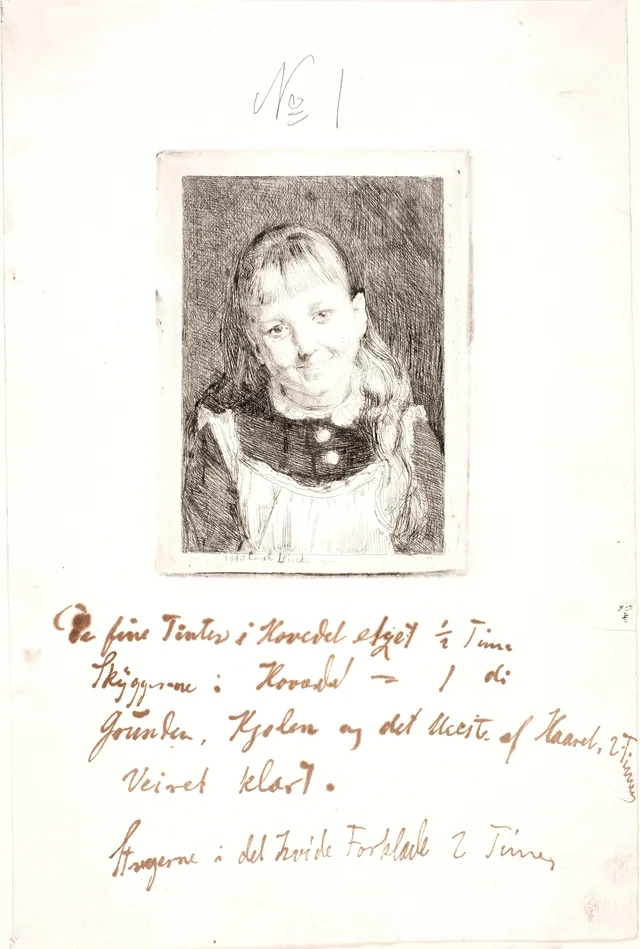 No 1
De fine Tinter i Hovedet etzet ½ Time
Skyggerne i Hovedet = 1 di
Grunden, Kjolen og det Meeste af Haaret, 2 Timer
Veiret klart.
i det hvide Forklæde 2 Timer